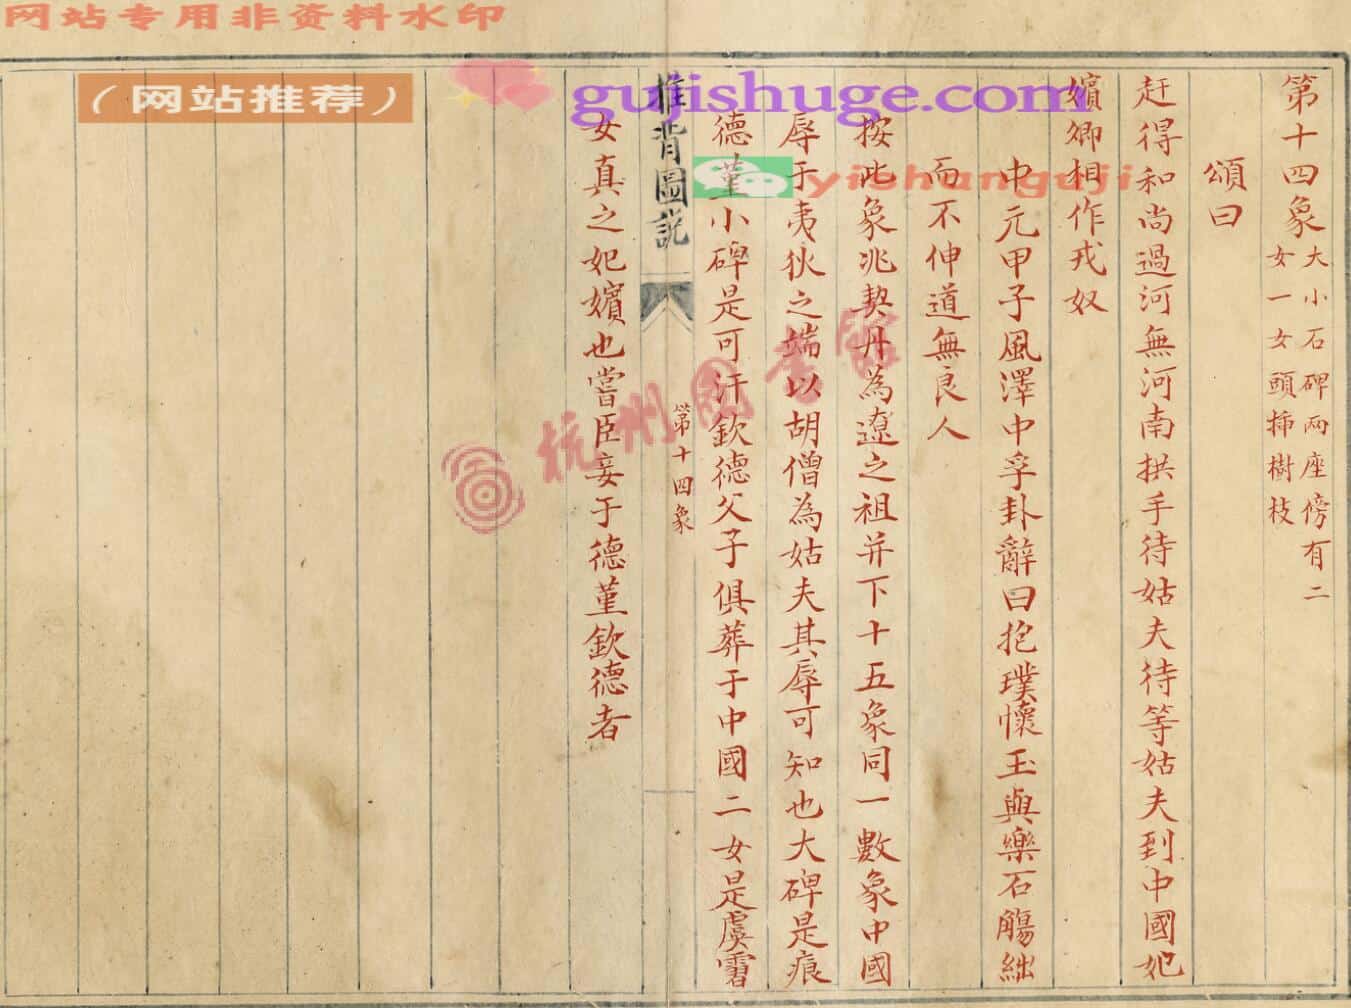 网站专用非资料水印
（网站推荐）
gujishuge.com
yishanguji
杭州圖書館
第十四象
大小石碑兩座傍有二
女一女頭插樹枝
頌曰
赶得和尚過河無河南拱手待姑夫待等姑夫到中國妃
嬪卿相作戎奴
中元甲子風澤中孚卦辭曰抱璞懷玉與樂石觴絀
而不伸道無良人
按此象兆契丹為遼之祖并下十五象同一數象中國
辱于夷狄之端以胡僧為姑夫其辱可知也大碑是痕
德菫小碑是可汗欽德父子俱葬于中國二女是虞霫
推背圖說
第十四象
女真之妃嬪也嘗臣妾于德菫欽德者